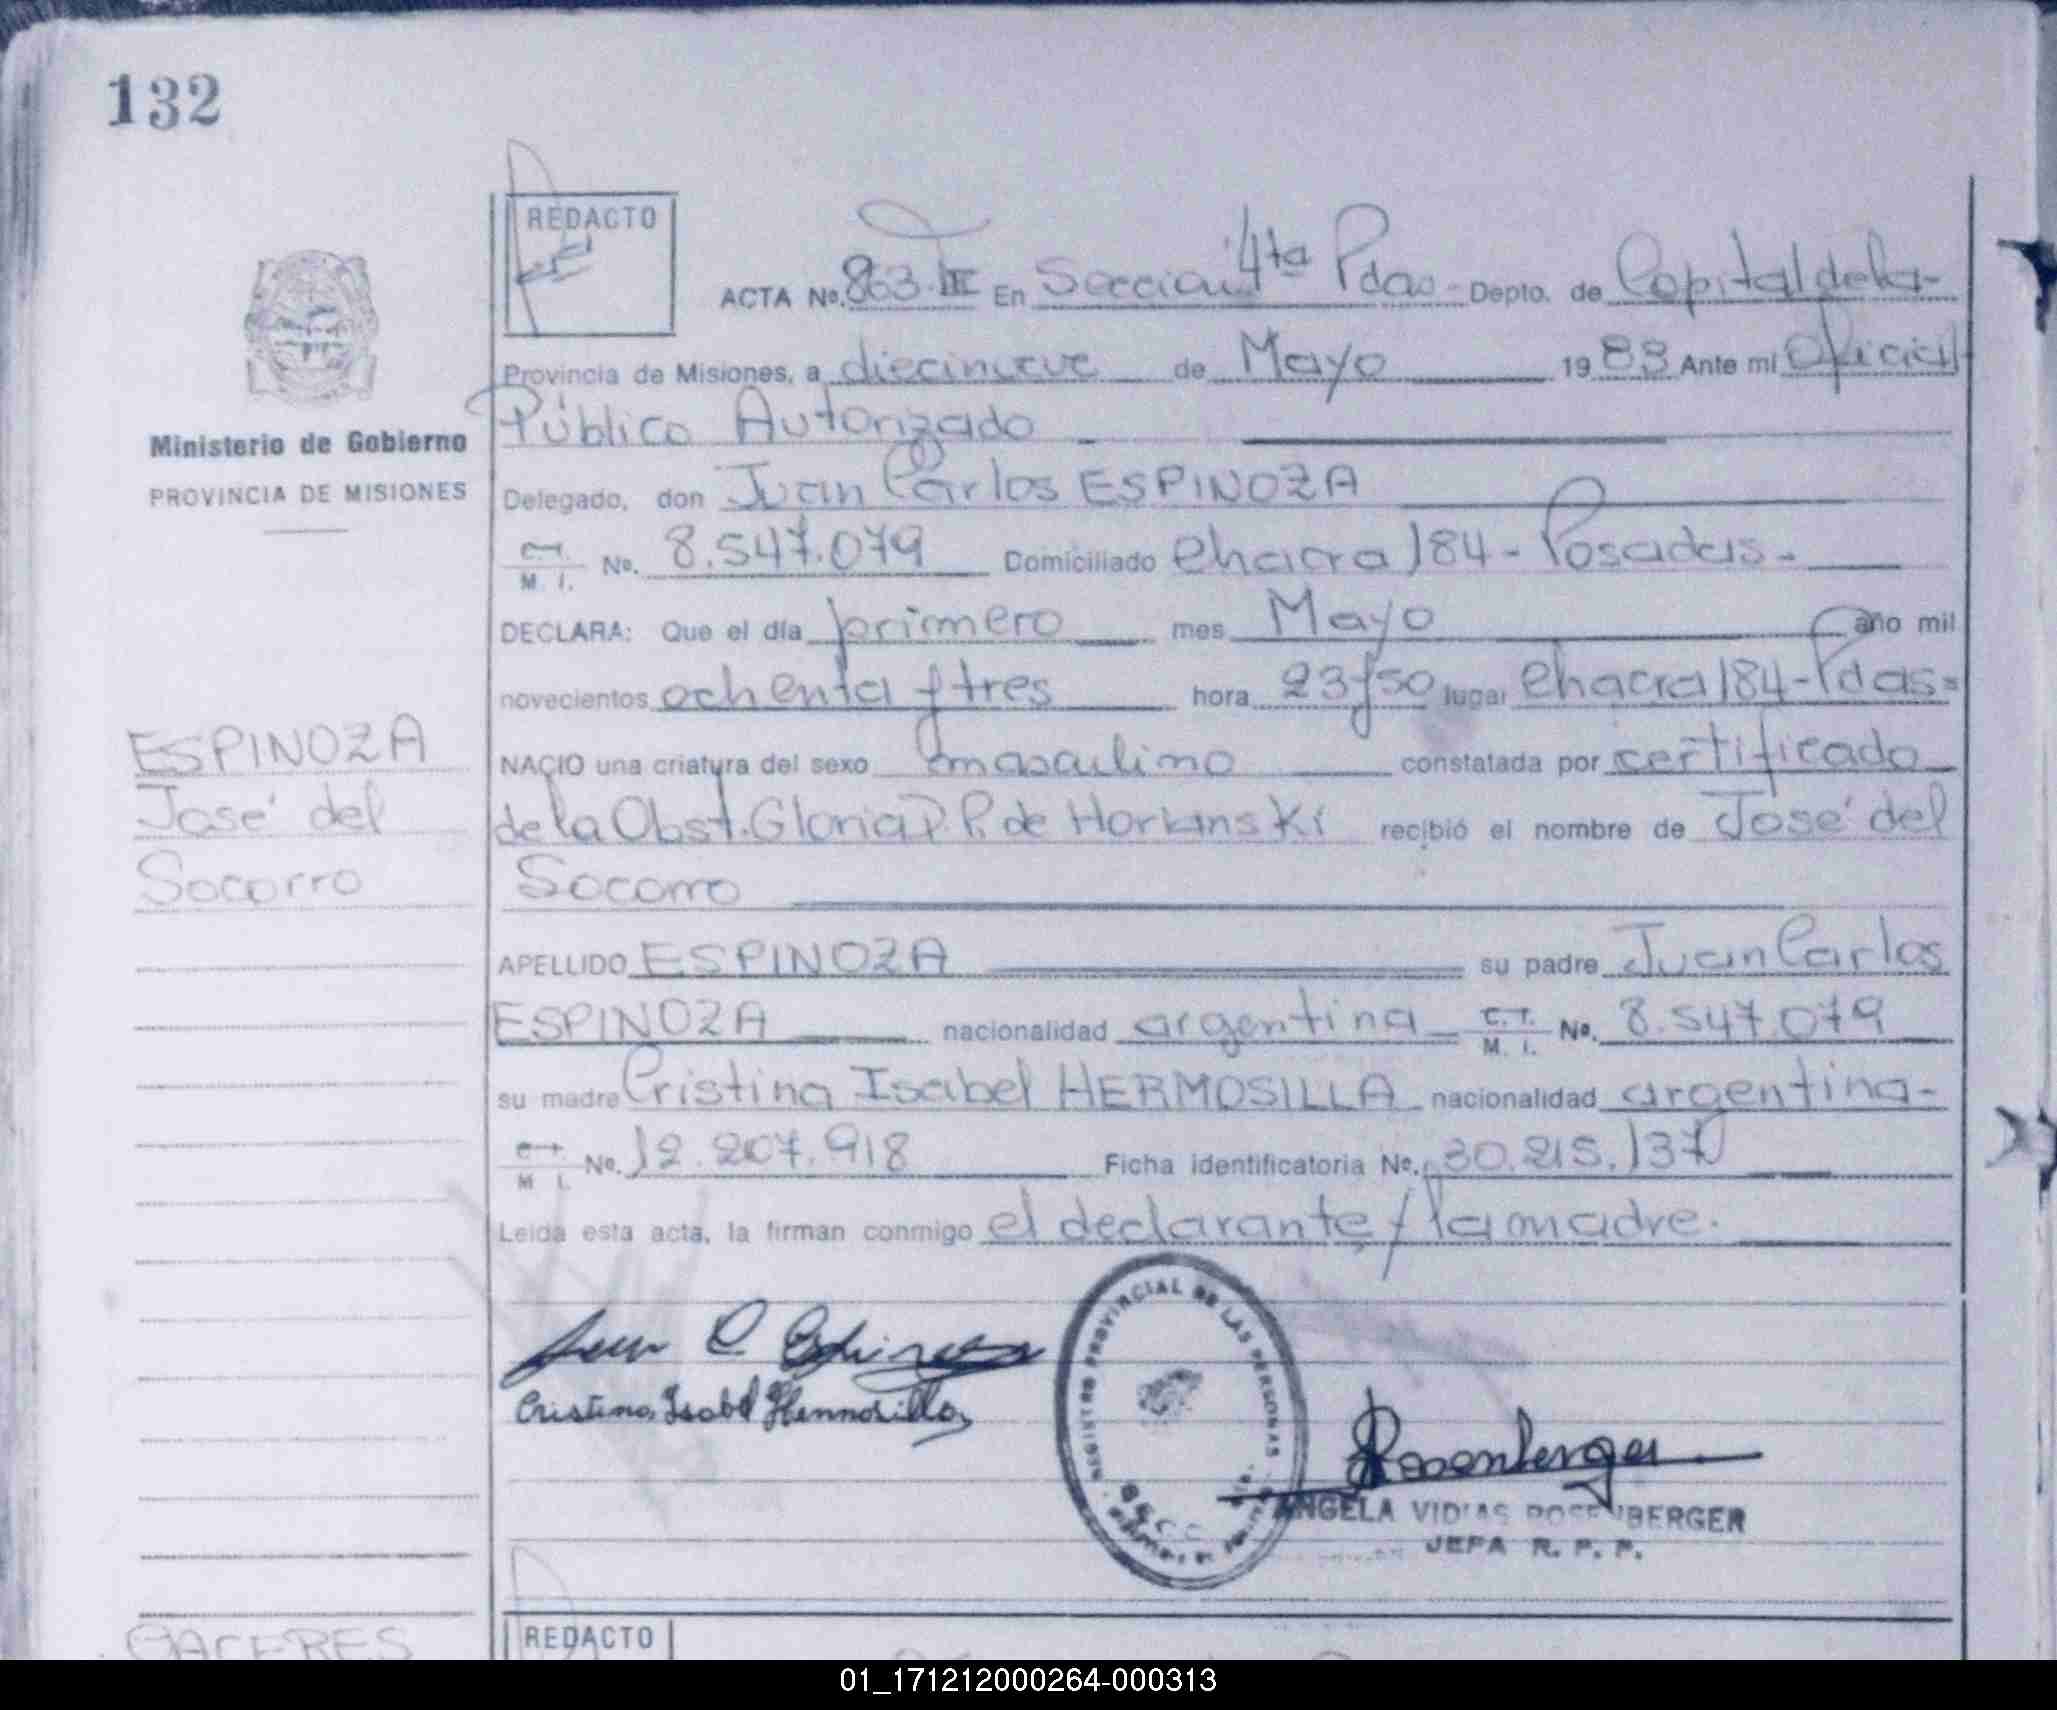 132
REDACTO
ACTA No. 863.III En Sección 4ta Pdas - Depto. de Capital de la-
Provincia de Misiones, a diecinueve de Mayo 1983 Ante mi Oficial
Público Autorizado -
Ministerio de Gobierno
PROVINCIA DE MISIONES
Delegado, don Juan Carlos ESPINOZA
M. I. No. 8.547.079 Domiciliado Chacra 184 - Posadas -
DECLARA: Que el día primero mes Mayo año mil
novecientos ochenta y tres hora 23y50 lugar Chacra 184 - Pdas=
NACIO una criatura del sexo masculino constatada por certificado
de la Obst. Gloria P. de recibió el nombre de José del
Socorro
ESPINOZA
José del
Socorro
APELLIDO ESPINOZA su padre Juan Carlos
ESPINOZA nacionalidad argentina C.I. M. I. No. 8.547.079
su madre Cristina Isabel HERMOSILLA nacionalidad argentina -
M I. No. 12.207.918 Ficha identificatoria No. 30.215.137
Leida esta acta, la firman conmigo el declarante y la madre.
Juan C. Espinoza
Cristina Isabel Hermosilla
REGISTRO PROVINCIAL DE LAS PERSONAS
SECC
Rosenberger
ANGELA ROSENBERGER
JEFA R. P. P.
CACERES
REDACTO
01_171212000264-000313